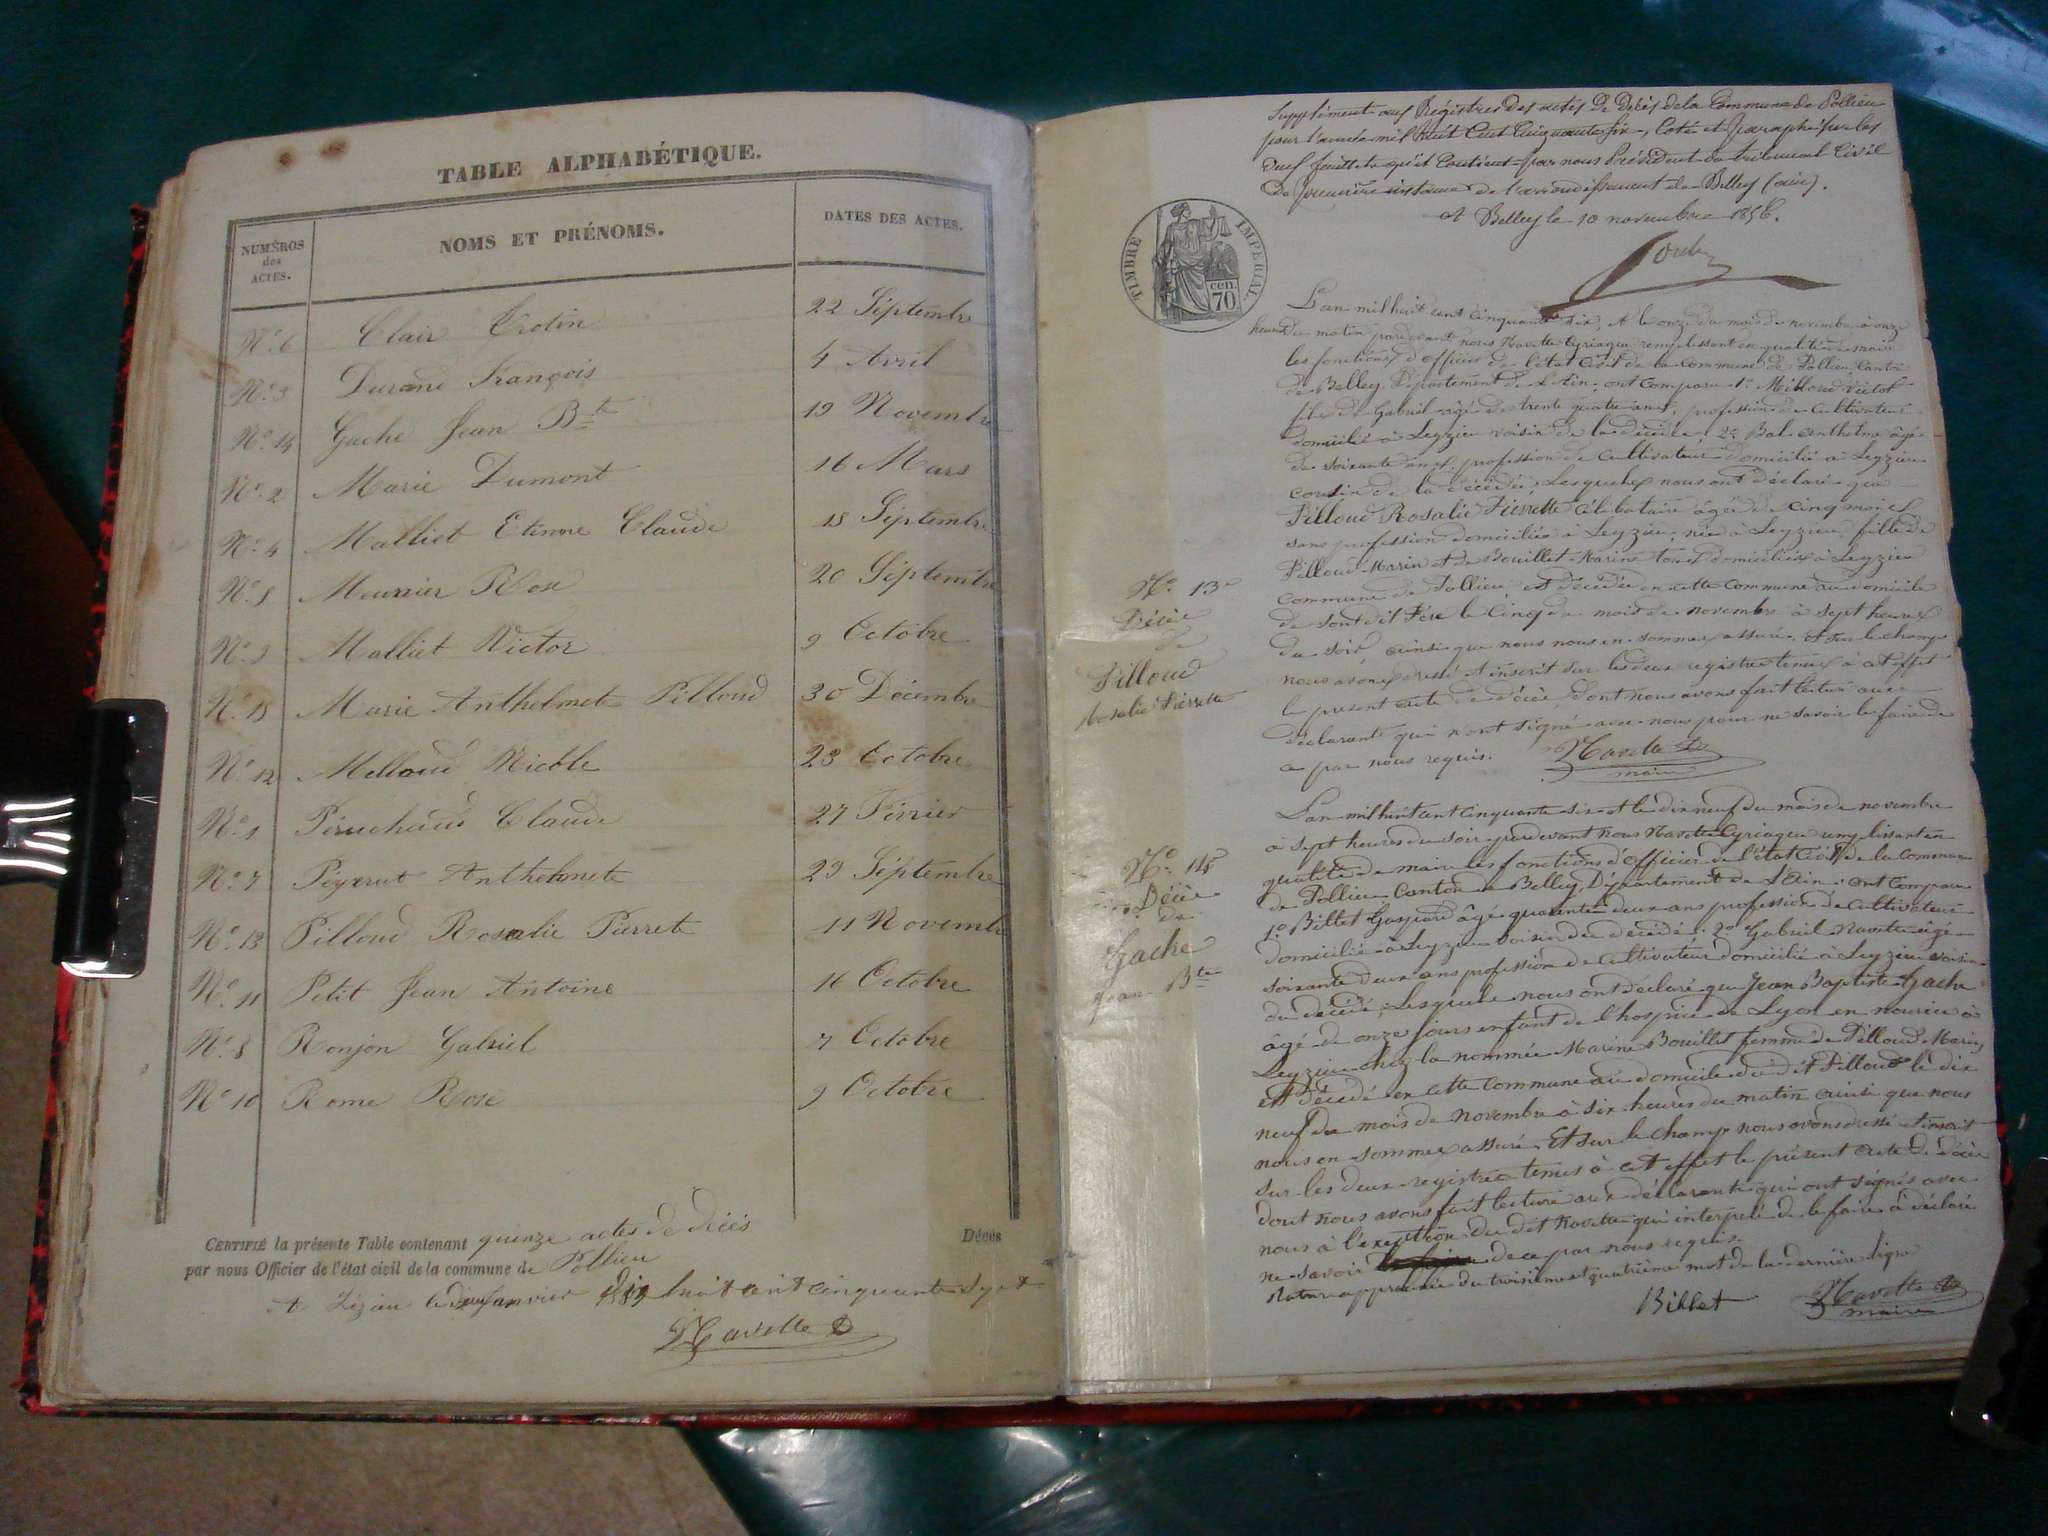 TABLE ALPHABÉTIQUE.
NUMÉROS
des
ACTES.
NOMS ET PRÉNOMS.
DATES DES ACTES.
N.o 6 Clair Trotin 22 Septembre
N.o 3 Durand François 4 Avril
N.o 14 Gache Jean Bte 19 Novembre
N.o 2 Marie Dumont 16 Mars
N.o 4 Malliet Etienne Claude 18 Septembre
N.o 5 Meunier Rose 20 Septembre
N.o 9 Malliet Victor 9 Octobre
N.o 15 Marie Anthelmete Pilloud 30 Décembre
N.o 12 Milloud 23 Octobre
N.o 1 Claude 27 Février
N.o 7 Anthelmete 29 Septembre
N.o 13 Pilloud Rosalie Pierrete 11 Novembre
N.o 11 Petit Jean Antoine 16 Octobre
N.o 8 Ronjon Gabriel 7 Octobre
N.o 10 Rome Rose 9 Octobre
CERTIFIÉ la présente Table contenant quinze actes de décès Décès
par nous Officier de l'état civil de la commune de Pollieu
A janvier huit cent cinquante Sept
Navette
Supplément aux Régistres des actes de Décès de la Commune de Pollieu
pour l'année mil Huit Cent Cinquante six, Coté et paraphé sur les
deux feuillets qu'il Contient par nous Président du tribunal Civil
de première instance de l'arrondissement de Belley (ain).
A Belley le 10 novembre 1856.
TIMBRE IMPERIAL
70 cen.
L'an mil huit cent cinquante six, et le onze du mois de novembre à onze
heures du matin pardevant nous Navette Cyriaque remplissant en qualité de maire
les fonctions d'officier de l'état civil de la commune de Pollieu Canton
de Belley, Département de l'Ain, ont comparu 1o Milloud Victor
fils de Gabriel âgé de trente quatre ans, profession de cultivateur
domicilié à Leyzieu voisin de la décédée 2o Bal anthelme âgé
de soixante ans, profession de cultivateur domicilié à Leyzieu
cousin de la décédée, Lesquels nous ont déclaré que
Pilloud Rosalie Pierrette célibataire âgée de cinq mois
sans profession domiciliée à Leyzieu, née à Leyzieu, fille de
Pilloud Marin et de Bouillet Marine tous domiciliés à Leyzieu
commune de Pollieu, est décédée en cette commune au domicile
de son dit Père le Cinq du mois de novembre à sept heures
du soir, ainsi que nous nous en sommes assuré, et sur le champ
nous avons dressé et inscrit sur les deux registres tenus à cet effet
le present acte de décès, dont nous avons fait lecture aux
déclarants qui n'ont signé avec nous pour ne savoir le faire de
ce par nous requis. Navette
maire
No 13
Décès
de
Pilloud
Rosalie Pierrette
L'an mil huit cent cinquante six et le dix neuf du mois de novembre
à sept heures du soir pardevant nous Navette Cyriaque remplissant en
qualité de maire les fonctions d'officier de l'état Civil de la commune
de Pollieu Canton de Belley, Département de l'Ain, ont comparu
1o Billet Gaspard âgé quarante deux ans profession de cultivateur
domicilié à Leyzieu voisin du décédé. 2o Gabriel Navette agé
soixante deux ans profession de cultivateur domicilié à Leyzieu voisin
du décédé, Lesquels nous ont déclaré que Jean Baptiste Gache
âgé de onze jours enfant de l'hospice de Lyon en nourice à
Leyzieu chez la nommée Marine Bouillet femme de Pilloud Marin
est décédé en cette commune au domicile du dit Pilloud le dix
neuf du mois de novembre à six heures du matin ainsi que nous
nous en sommes assuré, Et sur le champ nous avons dressé et inscrit
sur les deux registres tenus à cet effet le présent acte de décès
dont nous avons fait lecture aux déclarants qui ont signés avec
nous à l'exception du dit Navette qui interpelé de le faire à déclaré
ne savoir de ce par nous requis.
Rature approuvée du troisième et quatrième mot de la dernière ligne
Billet Navette
maire
No 14
Décès
de
Gache
Jean Bte